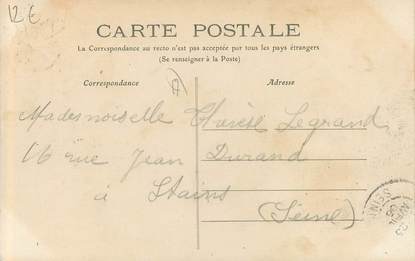 12 €
CARTE POSTALE
La Correspondance au recto n'est pas acceptée par tous les pays étrangers
(Se renseigner à la Poste)
Correspondance
Adresse
Mademoiselle Thérèse Legrand
16 rue Jean Durand
à Stains
(Seine)